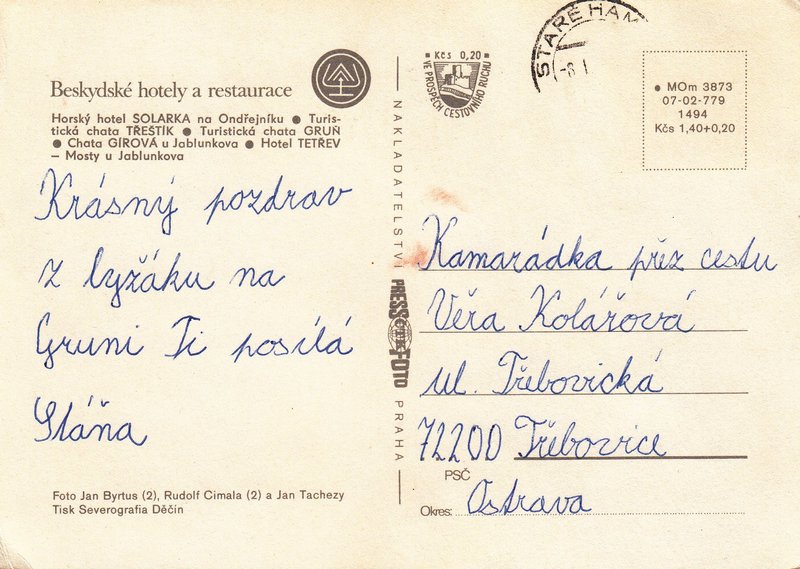 Beskydské hotely a restaurace
Horský hotel SOLARKA na Ondřejníku ● Turis-
tická chata TŘEŠTÍK ● Turistická chata GRUŇ
● Chata GÍROVÁ u Jablunkova ● Hotel TETŘEV
– Mosty u Jablunkova
Krásný pozdrav
z lyžáku na
Gruni Ti posílá
Stáňa
Foto Jan Byrtus (2), Rudolf Cimala (2) a Jan Tachezy
Tisk Severografia Děčín
NAKLADATELSTVÍ PRESSFOTO PRAHA
Kčs 0,20
VE PROSPĚCH CESTOVNÍHO RUCHU
STARÉ HAM
-8.1
● MOm 3873
07-02-779
1494
Kčs 1,40+0,20
Kamarádka přez cestu
Věra Kolářová
ul. Třebovická
72200 Třebovice
PSČ
Okres: Ostrava